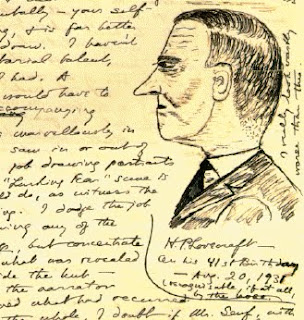 bally - your self-
, & is far bette
done. I haven't
torial talent,
I had. A
would have to
accompanying
marvellously in
saw in or out of
job drawing portraits
"Lurking Fear" scene is
ld do, as witness the
I dodge the job
wing any of the
, but concentrate
what was revealed
side the hut -
the narrator
what had occurred
whole. I doubt if Mr.
I rarely look exactly
worse than this.
HPLovecraft -
on his 41st Birthday
- Aug. 20, 1931
(recognisable, if at all,
by the nose)